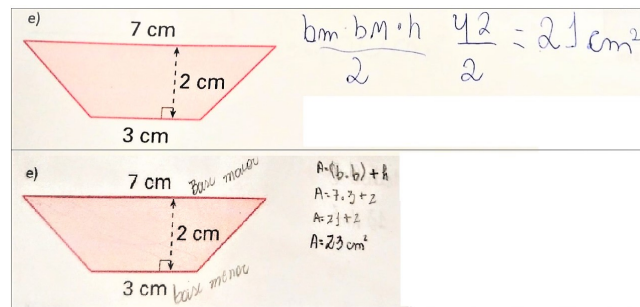 e)
7 cm
2 cm
3 cm
bm · bM · h 42 = 21 cm²
2 2
e)
7 cm Base maior
2 cm
3 cm base menor
A=(b.b)+h
A=7.3+2
A=21+2
A=23 cm²